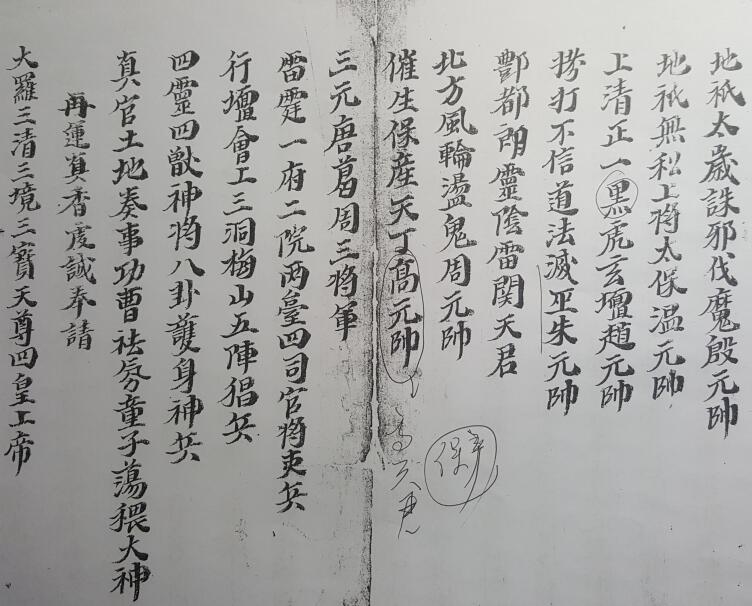 地祇太歲誅邪伐魔殷元帥
地祇無私上將太保温元帥
上清正一黑虎玄壇趙元帥
撈打不信道法滅巫朱元帥
酆都朗靈陰雷関天君
北方風輪盪鬼周元帥
催生保産天丁高元帥
保产
高天君
三元唐葛周三将軍
雷霆一府二院两臺四司官将吏兵
行壇會上三洞梅山五陣猖兵
四靈四獸神将八卦護身神兵
真官土地奏事功曹祛氛童子蕩穢大神
再運真香虔誠奉請
大羅三清三境三寶天尊四皇上帝